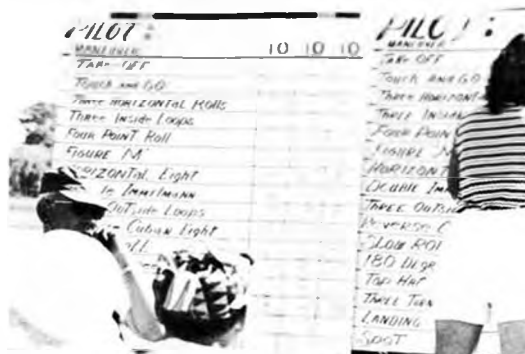 PILOT :
MANEUVER 10 10 10
TAKE OFF
TOUCH AND GO
THREE HORIZONTAL ROLLS
THREE INSIDE LOOPS
FOUR POINT ROLL
FIGURE M
HORIZONTAL EIGHT
LE IMMELMANN
OUTSIDE LOOPS
CUBAN EIGHT
PILOT :
MANEUVER
TAKE OFF
TOUCH AND GO
THREE HORIZONT
THREE INSIDE
FOUR POIN
FIGURE
HORIZONT
DOUBLE IMM
THREE OUTSI
REVERSE C
SLOW ROL
180 DEGR
TOP HAT
THREE TURN
LANDING
SPOT